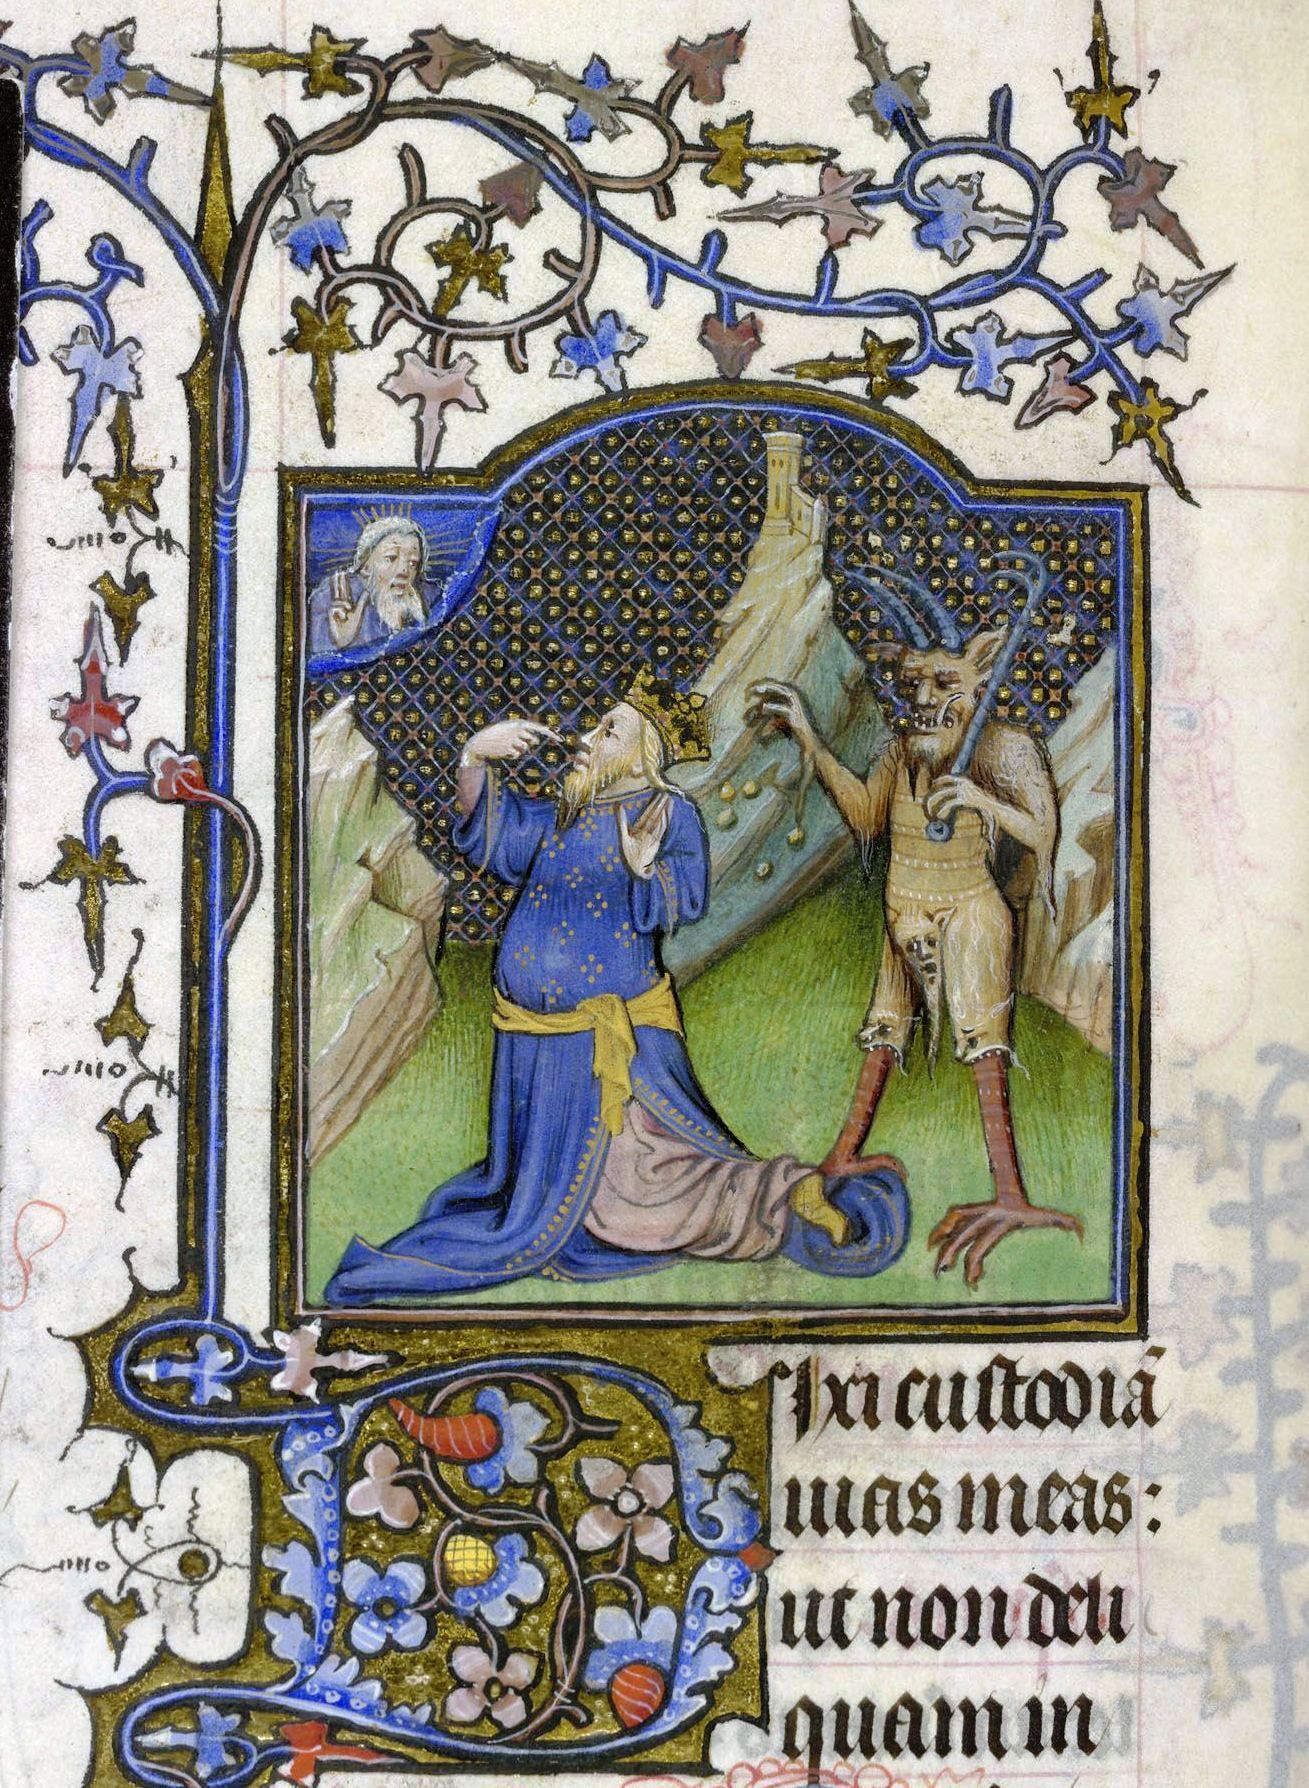 Dixi custodiā
uias meas:
ut non deli
quam in